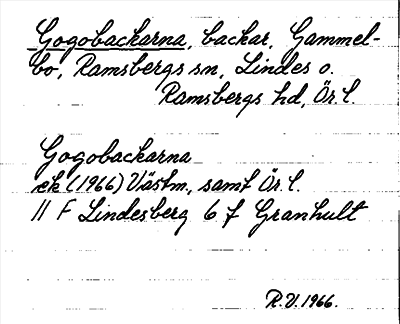 Gogobackarna, backar, Gammel-
bo, Ramsbergs sn, Lindes o.
Ramsbergs hd, Ör. l.
Gogobackarna
ek (1966) Västm, samt Ör. l.
11 F Lindesberg 6 f Granhult
R.V. 1966.